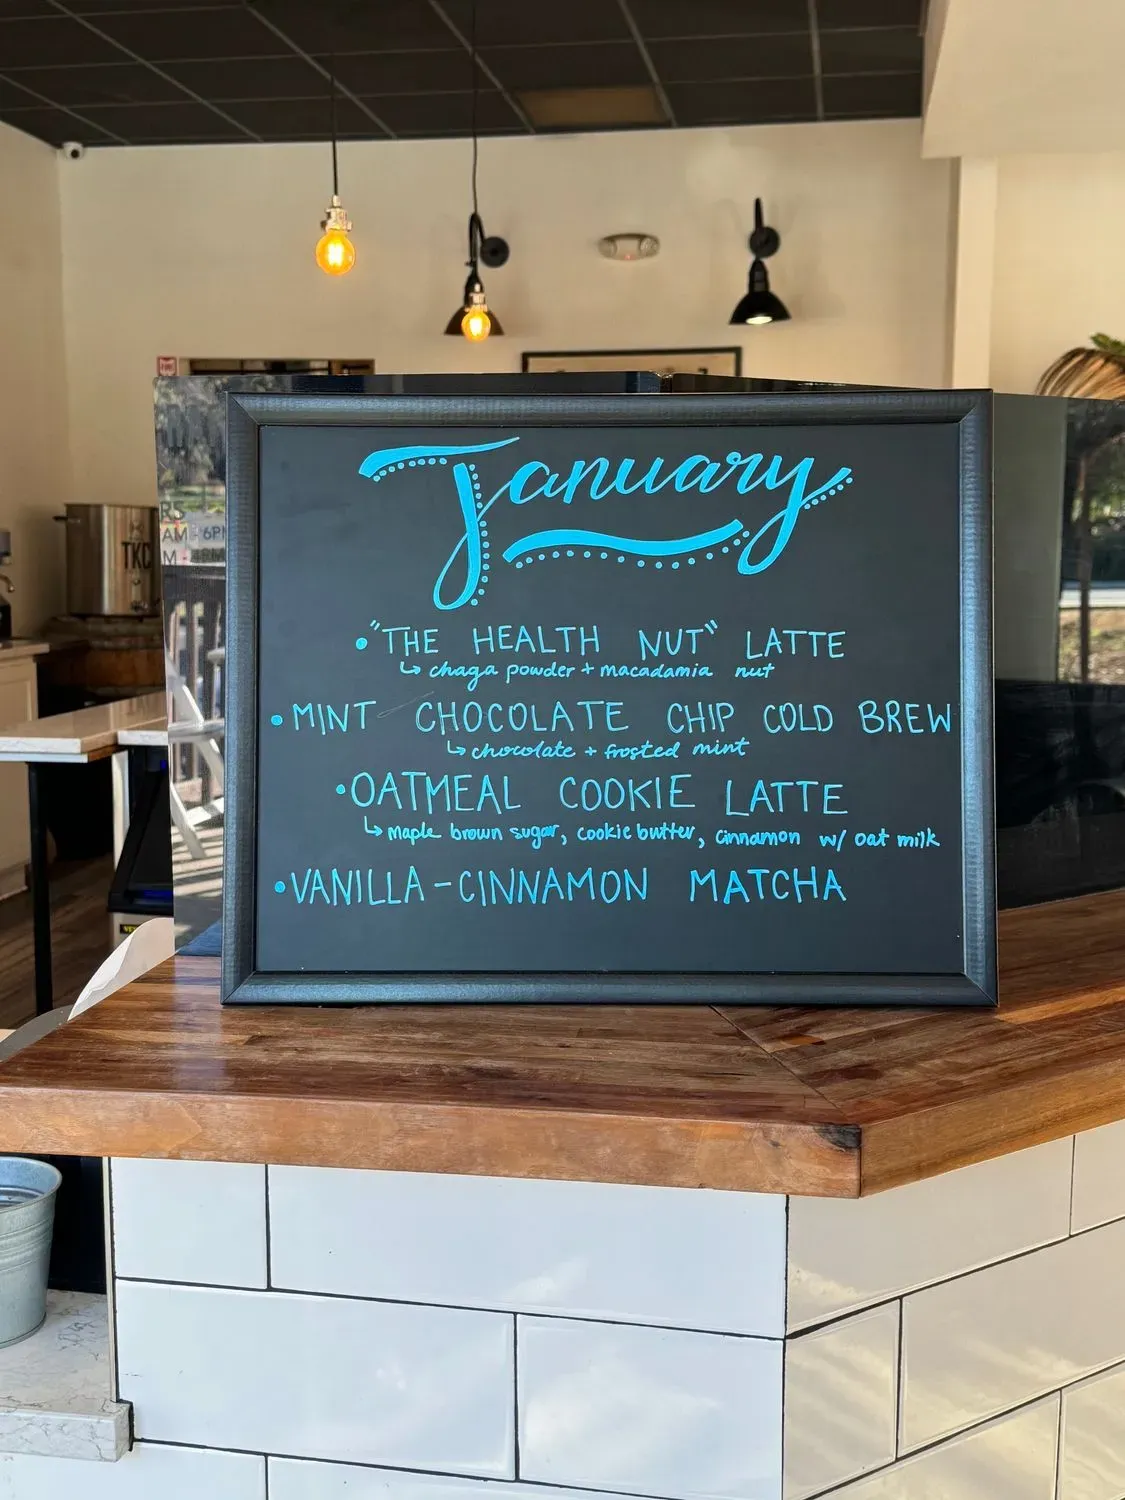 January
• "THE HEALTH NUT" LATTE
↳ chaga powder + macadamia nut
• MINT CHOCOLATE CHIP COLD BREW
↳ chocolate + frosted mint
• OATMEAL COOKIE LATTE
↳ maple brown sugar, cookie butter, cinnamon w/ oat milk
• VANILLA-CINNAMON MATCHA
TKC